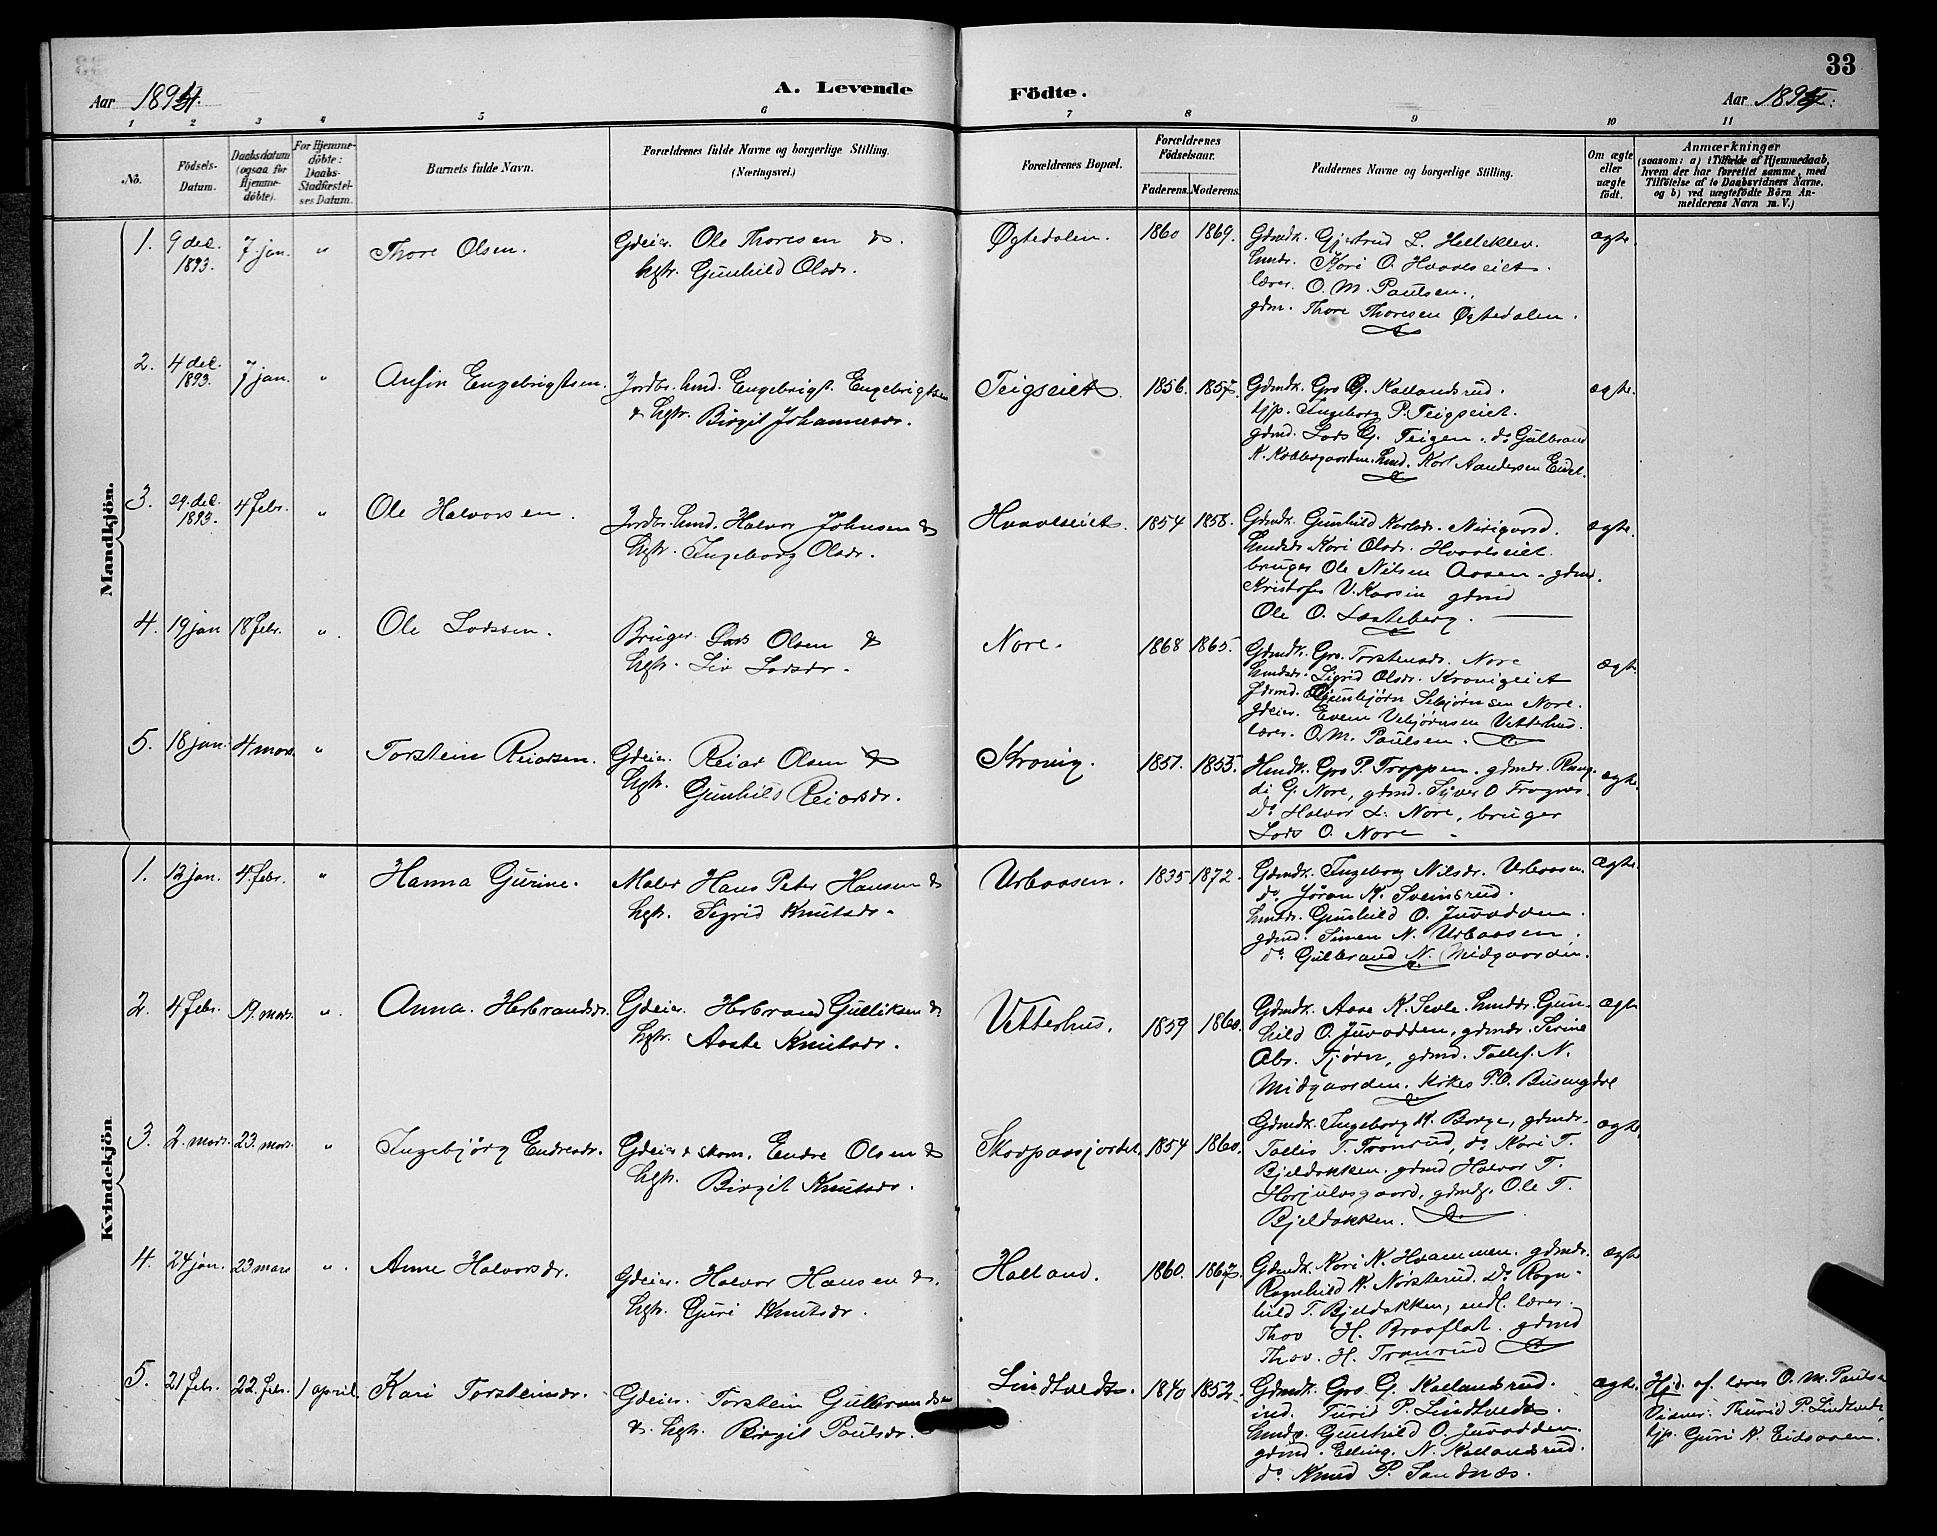 33
Aar 1894. A. Levende Födte. Aar 1894.
1 2 3 4 5 6 7 8 9 10 11
No.
Födsels-
Datum.
Daabsdatum
(ogsaa for
Hjemme-
döbte).
For Hjemme-
döbte:
Daabs-
Stadfæstel-
ses Datum.
Barnets fulde Navn.
Forældrenes fulde Navne og borgerlige Stilling.
(Næringsvei.)
Forældrenes Bopæl.
Forældrenes
Födselsaar.
Faderens. Moderens.
Faddernes Navne og borgerlige Stilling.
Om ægte
eller
uægte
födt.
Anmærkninger
(saasom: a) i Tilfælde af Hjemmedaab,
hvem der har forrettet samme, med
Tilföielse af to Daabsvidners Navne,
og b) ved uægtefödte Börn An-
melderens Navn m. V.)
Mandkjön.
1. 9 dec. 1893. 7 jan. " Thore Olsen. Gdeier. Ole Thoresen &
hgtr. Gunhild Olsdr.
Øgtedalen. 1860 1869.
Gdmdk. Gjertrud L. Helleklev.
hmdr. Kari O. Hvaalseiet.
lærer. O. M. Paulsen.,
gdm. Thore Thoresen Øgtedalen.
ægte.
2. 4 dec. 1893. 7 jan. " Anfin Engebrigtsen. Jordbr. hmd. Engebrigt Engebrigtsen
& hgtr. Birgit Johannesdr.
Teigseiet. 1856. 1857.
Gdmdk. Gro G. Kallandsrud.
tjp. Ingeborg P. Teigseiet.
gdmd. Lars G. Teigen. do Gulbrand
K. Kobbergaarden. hmd. Karl Aandersen Eidet.
ægte.
3. 29. dec. 1893. 4 febr. " Ole Halvorsen. Jordbr. hmd. Halvor Johnsen &
hgtr. Ingeborg Olsdr.
Hvaalseiet. 1854 1858.
Gdmdk. Gunhild Karlsdr. Nirigaard.
hmdsdr. Kari Olsdr. Hvaalseiet.
bruger Ole Nilsen Aasen. gdmd.
Kristofer V. Kaasin gdmd
Ole O. Laateberg.
ægte.
4. 19 jan 18 febr. " Ole Larssen. Bruger Lars Olsen &
hgtr. Liv Larsdr.
Nore. 1868 1865.
Gdmdk. Gro Torstensdr. Nore
hmdsdr. Sigrid Olsdr. Kravigeiet
gdmd. Gunbjørn Sebjørnsen Nore.
gdeier. Even Vebjørnsen Vetterhus.
lærer. O. M. Paulsen.
ægte.
5. 18 jan. 4 mars. " Torstein Reiarsen. Gdeier. Reiar Olsen &
hgtr. Gunhild Reiarsdr.
Kravig. 1851. 1855.
Hmdk. Gro P. Trappen. gdmdr. Rang-
di G. Nore, gdmd. Syver O Frogner
Do Halvor L. Nore, bruger
Lars O. Nore
ægte.
Kvindekjön
1. 12 jan. 4. febr. " Hanna Gurine. Maler Hans Peter Hansen &
hgtr. Sigrid Knutsdr.
Urbaasen. 1835 1872.
Gdmdk. Ingeborg Nilsdr. Urbaasen.
do Jøran K. Sveinsrud.
hmdr. Gunhild O. Juvadden.
gdmd. Simen N. Urbaasen.
do Gulbrand N. Midgaarden.
ægte.
2. 4 febr. mars. " Anna. Herbrandsdr. Gdeier. Herbrand Gulliksen &
hgtr. Aaste Knutsdr.
Vetterhus. 1859 1860.
Gdmdk. Aase K. Sevle. hmddr. Gun-
hild O. Juvadden, gdmdr. Serine
Abr. Tjørn, gdmd. Tollef. N.
Midgaarden. kirkes. P. O. Busengdal
ægte
3. 2. mars. 23. mars. " Ingebjörg Endresdr. Gdeier & skom. Endre Olsen &
hgtr. Birgit Knutsdr.
Skarpaasjordet. 1854 1860.
Gdmdk. Ingeborg K. Borge, gdmdr.
T. Tranrud, do Kari T.
Bjeldokken. gdmd Halvor T.
Horjulvsgaard, gdmds. Ole T.
Bjeldokken.
ægte
4. 24 jan. 23 mars ". Anne Halvorsdr. Gdeier. Halvor Hansen &
hgtr. Guri Knutsdr.
Halland. 1860. 1867.
Gdmdk. Kari K. Hvammen. gdmdr.
Ragnhild K. Nørsterud. Do Ragn-
hild T. Bjeldokken, endl. lærer.
Thov H. Braaflat. gdmd
Thov. H. Tranrud
ægte
5. 21 febr. 22. febr. 1 april. Kari Torsteinsdr. Gdeier. Torstein Gulbrandsen
&. hgtr. Birgit Paulsdr.
Lindtvedt. 1840 1852.
Gdmdk. Gro G. Kallandsrud.
ind. Turid P. Lindtvedt.
hmdr. Gunhild O. Juvadden.
gdmd. Elling. N. Kallandsrud.
do Knud P. Sandnæs.
ægte.
Hjd. af. lærer O. M. Paulsen
Vidner: Thurid P. Lindtvedt,
tjp. Guri K. Eidsaaen.